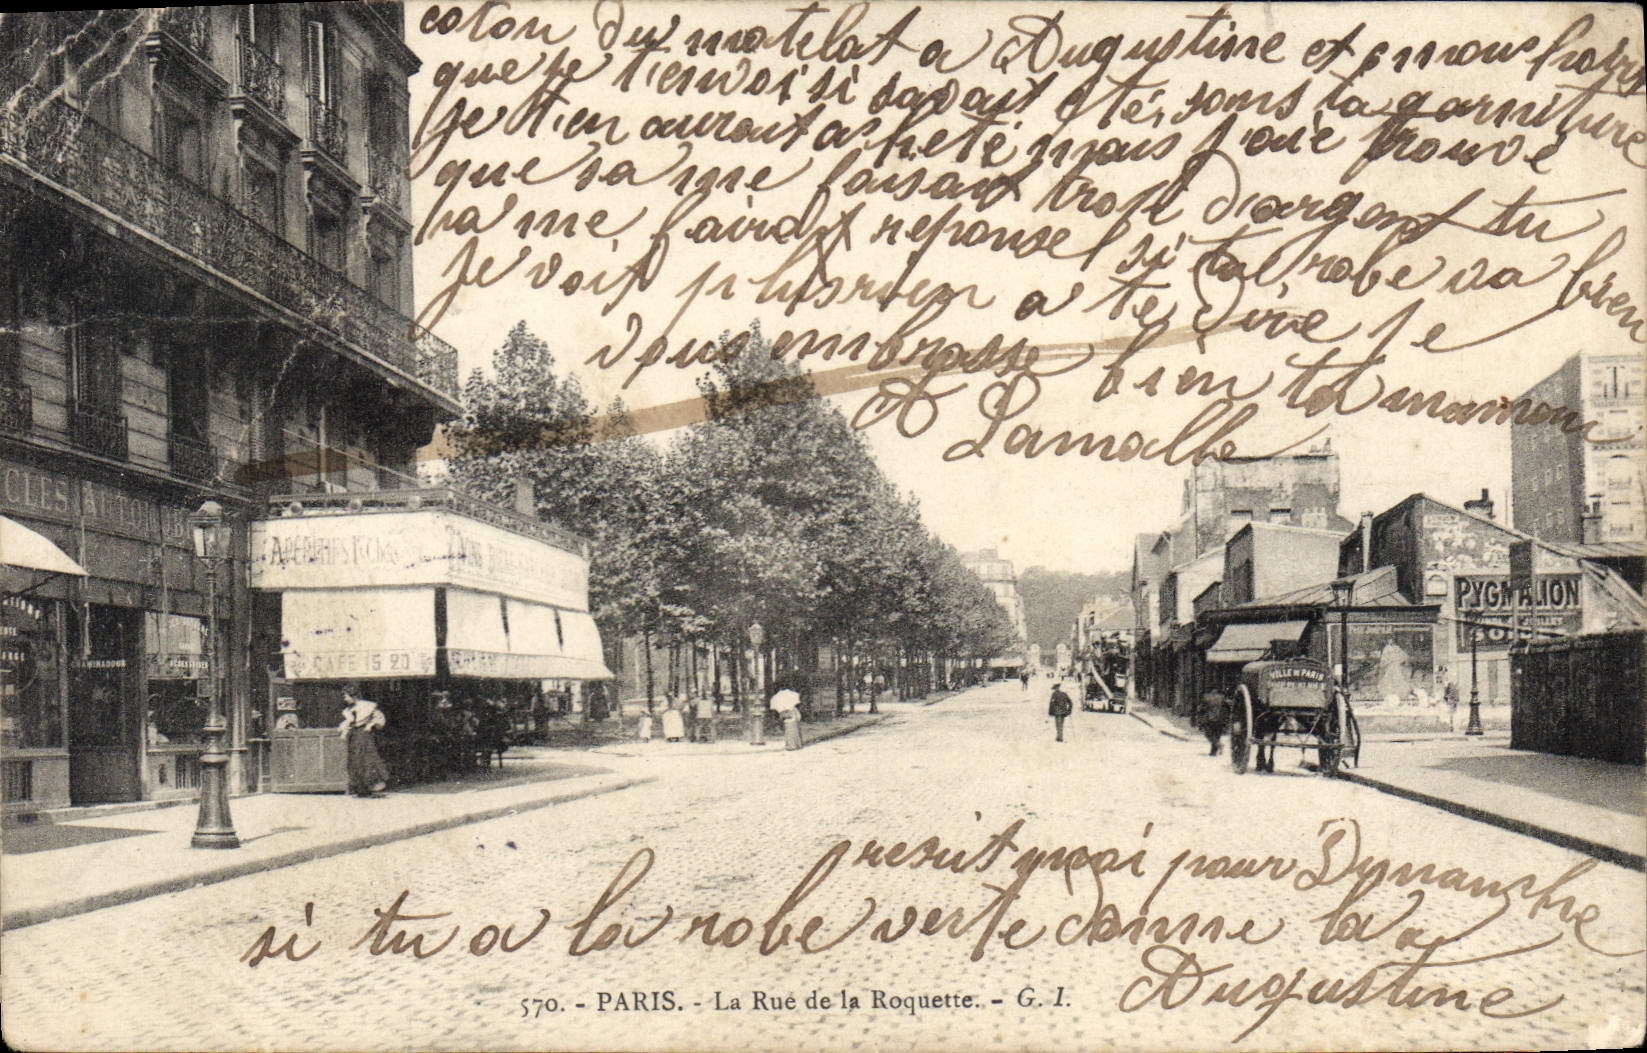 coton du matelat a Augustine et
que je t'envoi si savait eté, sons ta garniture
je t'en aurait acheté mais j'aie trouvé
que sa me faisait trop d'argent tu
ra me faird reponse si ta robe va bien
je voit plus rien a te dire je
vous embrasse bien ta maman
A Lamalle
CLES AUTOMOB
APERITIFS 1r Choix
VINS
CAFE 15 20
CHAMINADOUR
ACCESSOIRES
VILLE DE PARIS
PYGMALION
JUILLET
SOLDES
resrit moi pour Dymanche
si tu a la robe verte donne la a
Augustine
570. - PARIS. - La Rue de la Roquette. - G. I.